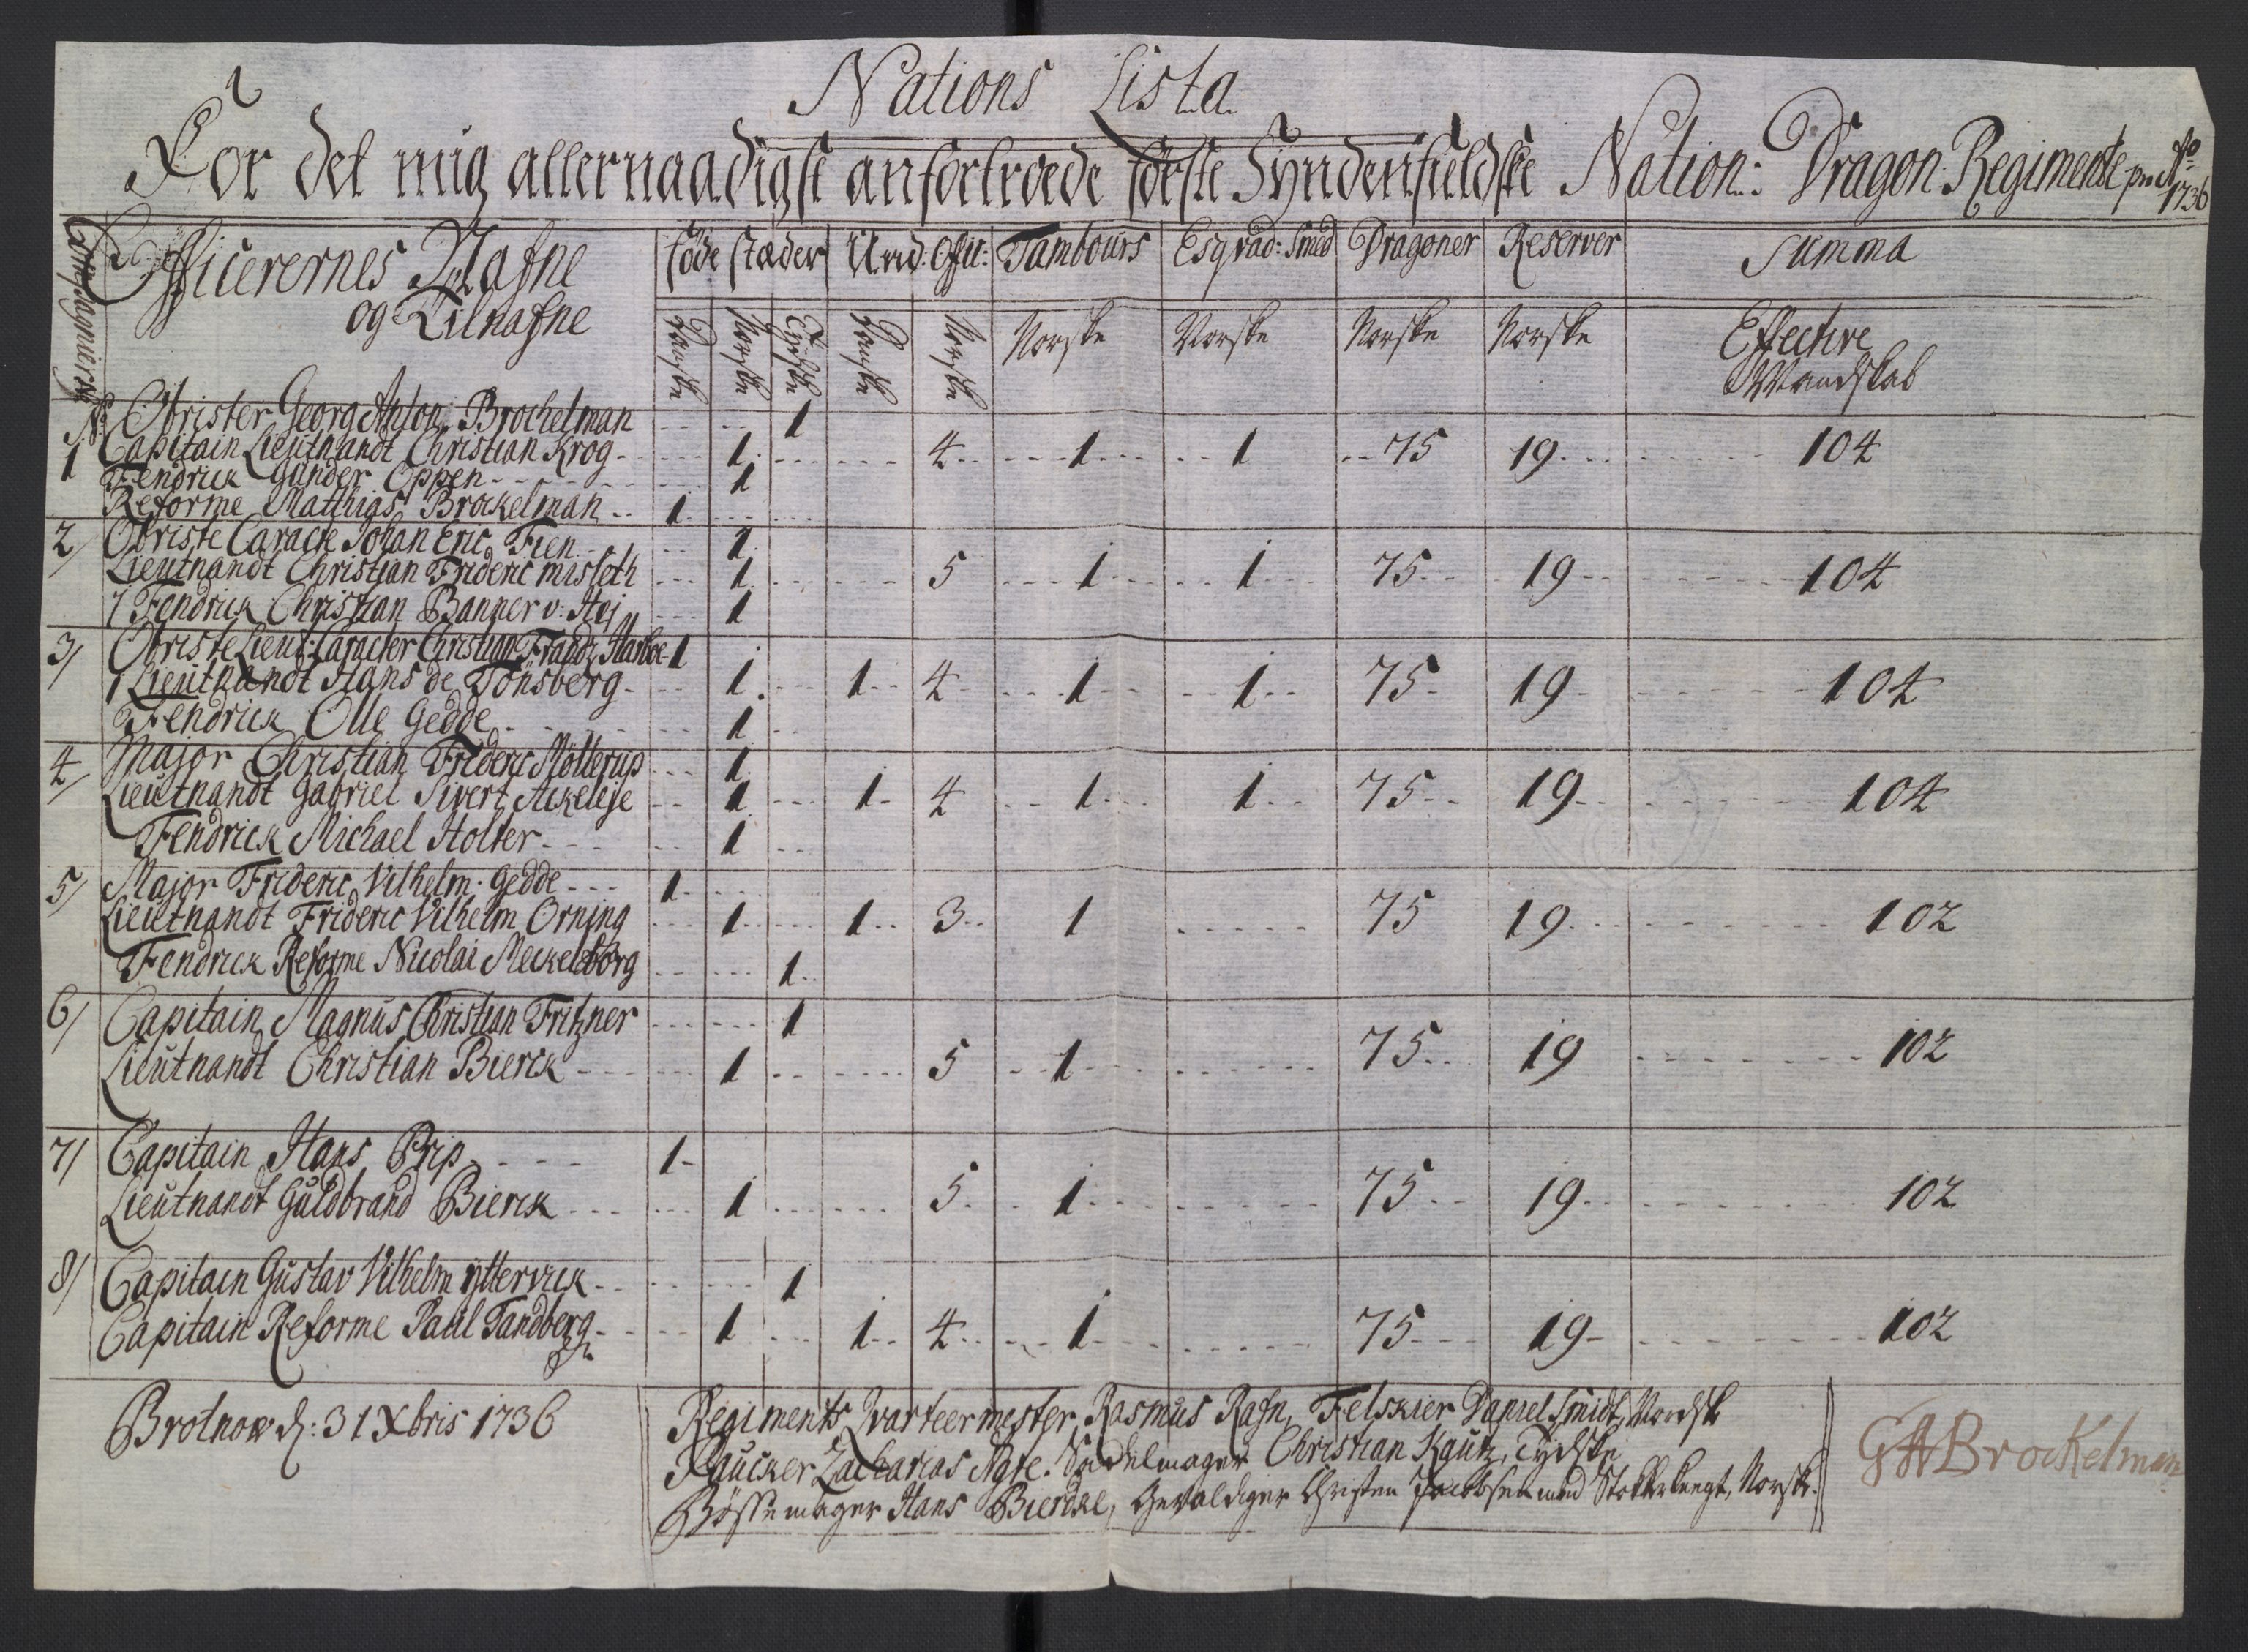 Nations Lista
For det mig allernaadigst anfortroede förste Syndenfieldske Nation: Dragon Regimente pro Ao 1736
Compagnierne
Officerernes Nafne
og Tilnafne
föde stæder
Und: Offic:
Tambours
Esqvad: Smed
Dragoner
Reserver
Summa
Danske Norske Tydske Danske Norske Norske Norske Norske Norske
Effective
Mandskab
No
Obrister Georg Anton Brockelman - - - 1
1 Capitain Lieutnandt Christian Krog - 1 - 4 - 1 - 1 - 75 19 - 104
Fendrick Gunder Oppen - 1
Reforme Matthias Brockelman - 1
2/ Obriste Caracte Johan Eric Fien - 1
Lieutnandt Christian Frideric Misleth - 1 - 5 - 1 - 1 75 - 19 - 104
Fendrick Christian Banner v: Høj - 1
3/ Obriste Lieut: Caracter Christian Frandz Harboe - 1
Lieutnandt Hans de Tönsberg - 1 - 1 - 4 - 1 - 1 - 75 - 19 - 104
Fendrick Olle Gedde - 1
4/ Major Christian Frideric Möllerup - 1
Lieutnandt Gabriel Sivert Ackeleje - 1 - 1 - 4 - 1 - 1 - 75 - 19 - 104
Fendrick Michael Holter - 1
5/ Major Frideric Vilhelm Gedde - 1
Lieutnandt Frideric Vilhelm Orning - 1 - 1 - 3 - 1 - 75 19 - 102
Fendrick Reforme Nicolai Meckelborg - 1
6/ Capitain Magnus Christian Fritzner - 1
Lieutnandt Christian Bierck - 1 - 5 - 1 - 75 - 19 - 102
7/ Capitain Hans Prip - 1 -
Lieutnandt Guldbrand Bierck - 1 - 5 - 1 - 75 - 19 - 102
8/ Capitain Gustav Vilhelm Ytterwick - 1
Capitain Reforme Paul Tandberg - 1 - 1 - 4 - 1 - 75 - 19 - 102
Brotnow d: 31 Xbris 1736
Regiments Qvarteermester Rasmus Rafn, Felskier Daniel Smidt, Nordsk
Paucker Zacharias Agre. Sadelmager Christian Kautz, Tydske
Bössemager Hans Bierche, Gevaldiger Christen Jacobsen med Stokkeknegt, Norske.
GABrockelman